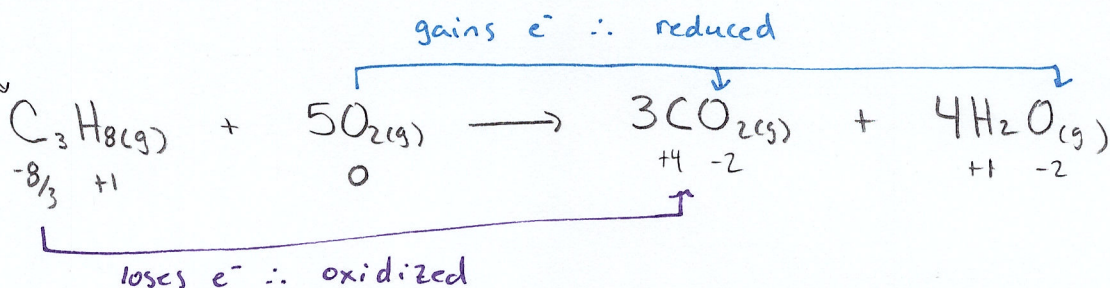 gains e⁻ ∴ reduced
C₃H₈(g) + 5O₂(g) ⟶ 3CO₂(g) + 4H₂O(g)
-8/3 +1 0 +4 -2 +1 -2
loses e⁻ ∴ oxidized